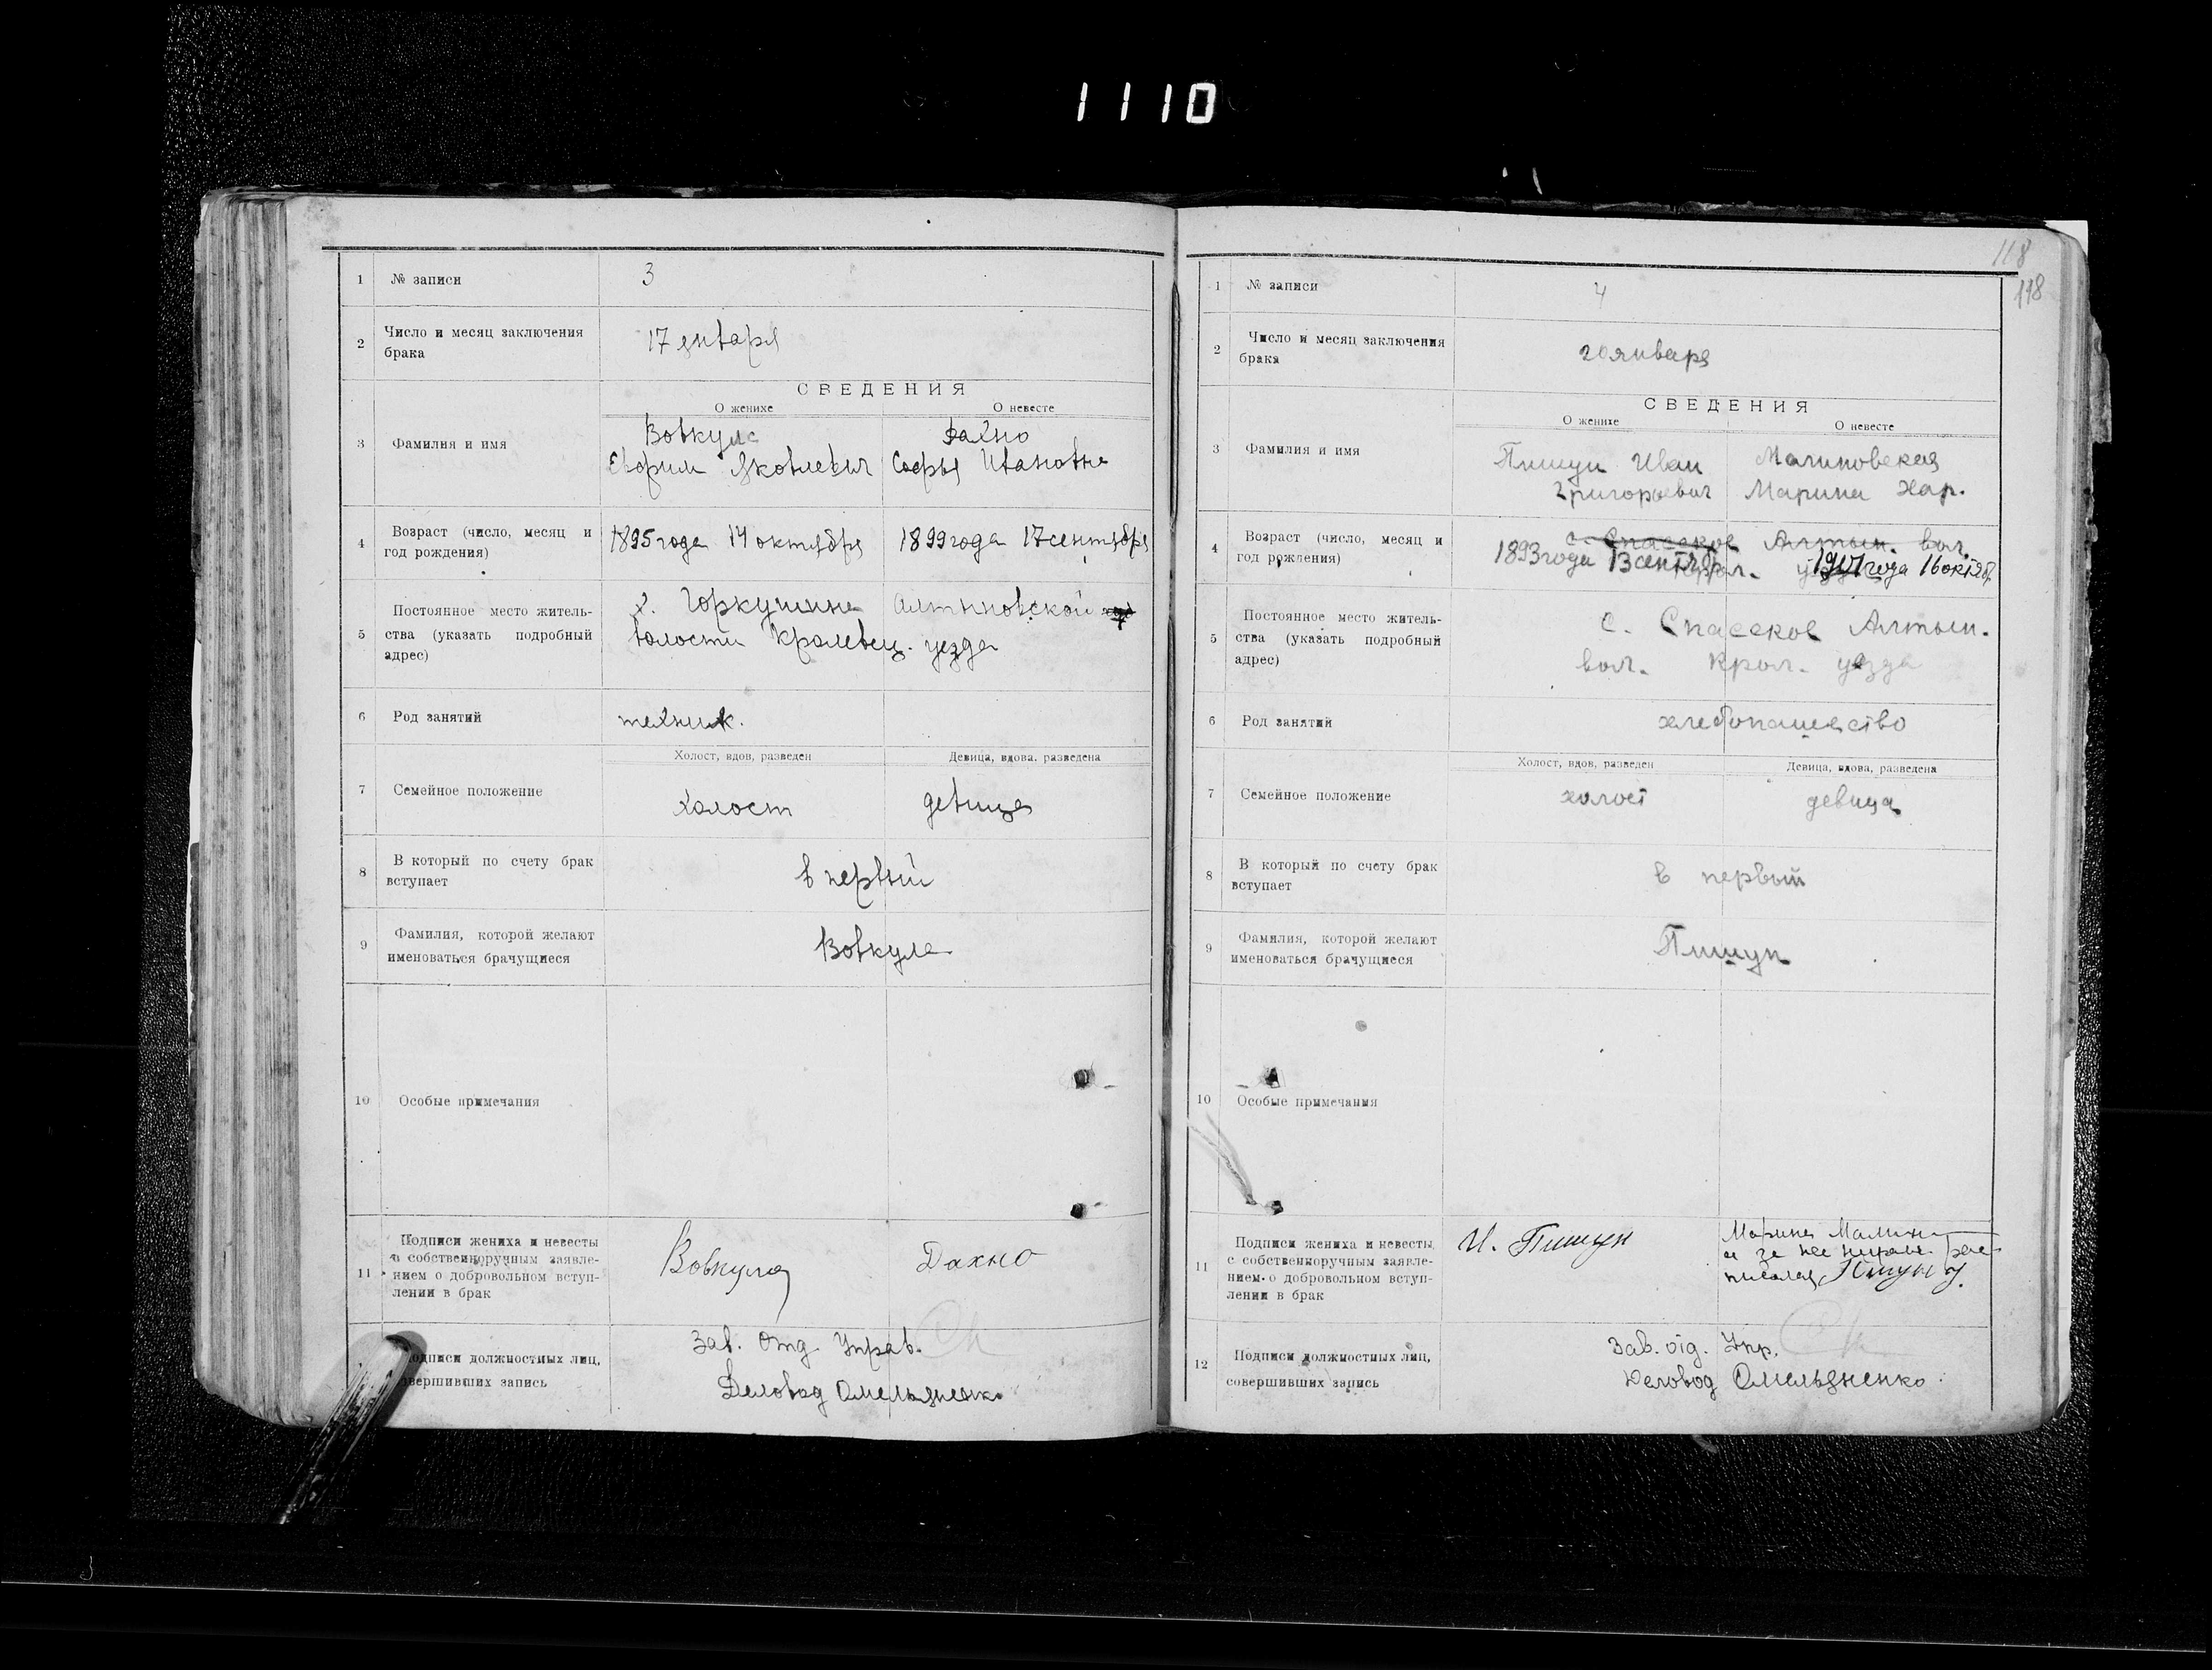 1110
1 № записи 3
2 Число и месяц заключения
брака
17 января
СВЕДЕНИЯ
О женихе О невесте
3 Фамилия и имя
Вовкула Дахно
Евфим Яковлевич Софья Ивановна
4 Возраст (число, месяц и
год рождения)
1895 года 14 октября 1899 года 17 сентября
5 Постоянное место житель-
ства (указать подробный
адрес)
х. Горкушина Алтыновской
волости Кролевец. уезда
6 Род занятий техник.
Холост, вдов, разведен Девица, вдова, разведена
7 Семейное положение холост девица
8 В который по счету брак
вступает
в первый
9 Фамилия, которой желают
именоваться брачущиеся
Вовкула
10 Особые примечания
11 Подписи жениха и невесты
с собственноручным заявле-
нием о добровольном вступ-
лении в брак
Вовкула Дахно
Подписи должностных лиц,
совершивших запись
Зав. Отд. Управ.
Деловод Омельяненко
118
118
1 № записи 4
2 Число и месяц заключения
брака
20 января
СВЕДЕНИЯ
О женихе О невесте
3 Фамилия и имя
Пищун Иван Малиновская
Григорьевич Марина Хар.
4 Возраст (число, месяц и
год рождения)
с. Спасское Алтын. вол.
1893 года 13 сентябр. 1901 года 16 октяб.
5 Постоянное место житель-
ства (указать подробный
адрес)
с. Спасское Алтын.
вол. Крол. уезда
6 Род занятий хлебопашество
Холост, вдов, разведен Девица, вдова, разведена
7 Семейное положение холост девица
8 В который по счету брак
вступает
в первый
9 Фамилия, которой желают
именоваться брачущиеся
Пищун
10 Особые примечания
11 Подписи жениха и невесты,
с собственноручным заявле-
нием о добровольном вступ-
лении в брак
И. Пищун
Марина Малин
а за нее рас-
писался Пищун
12 Подписи должностных лиц,
совершивших запись
Зав. отд. Упр.
Деловод Омельяненко